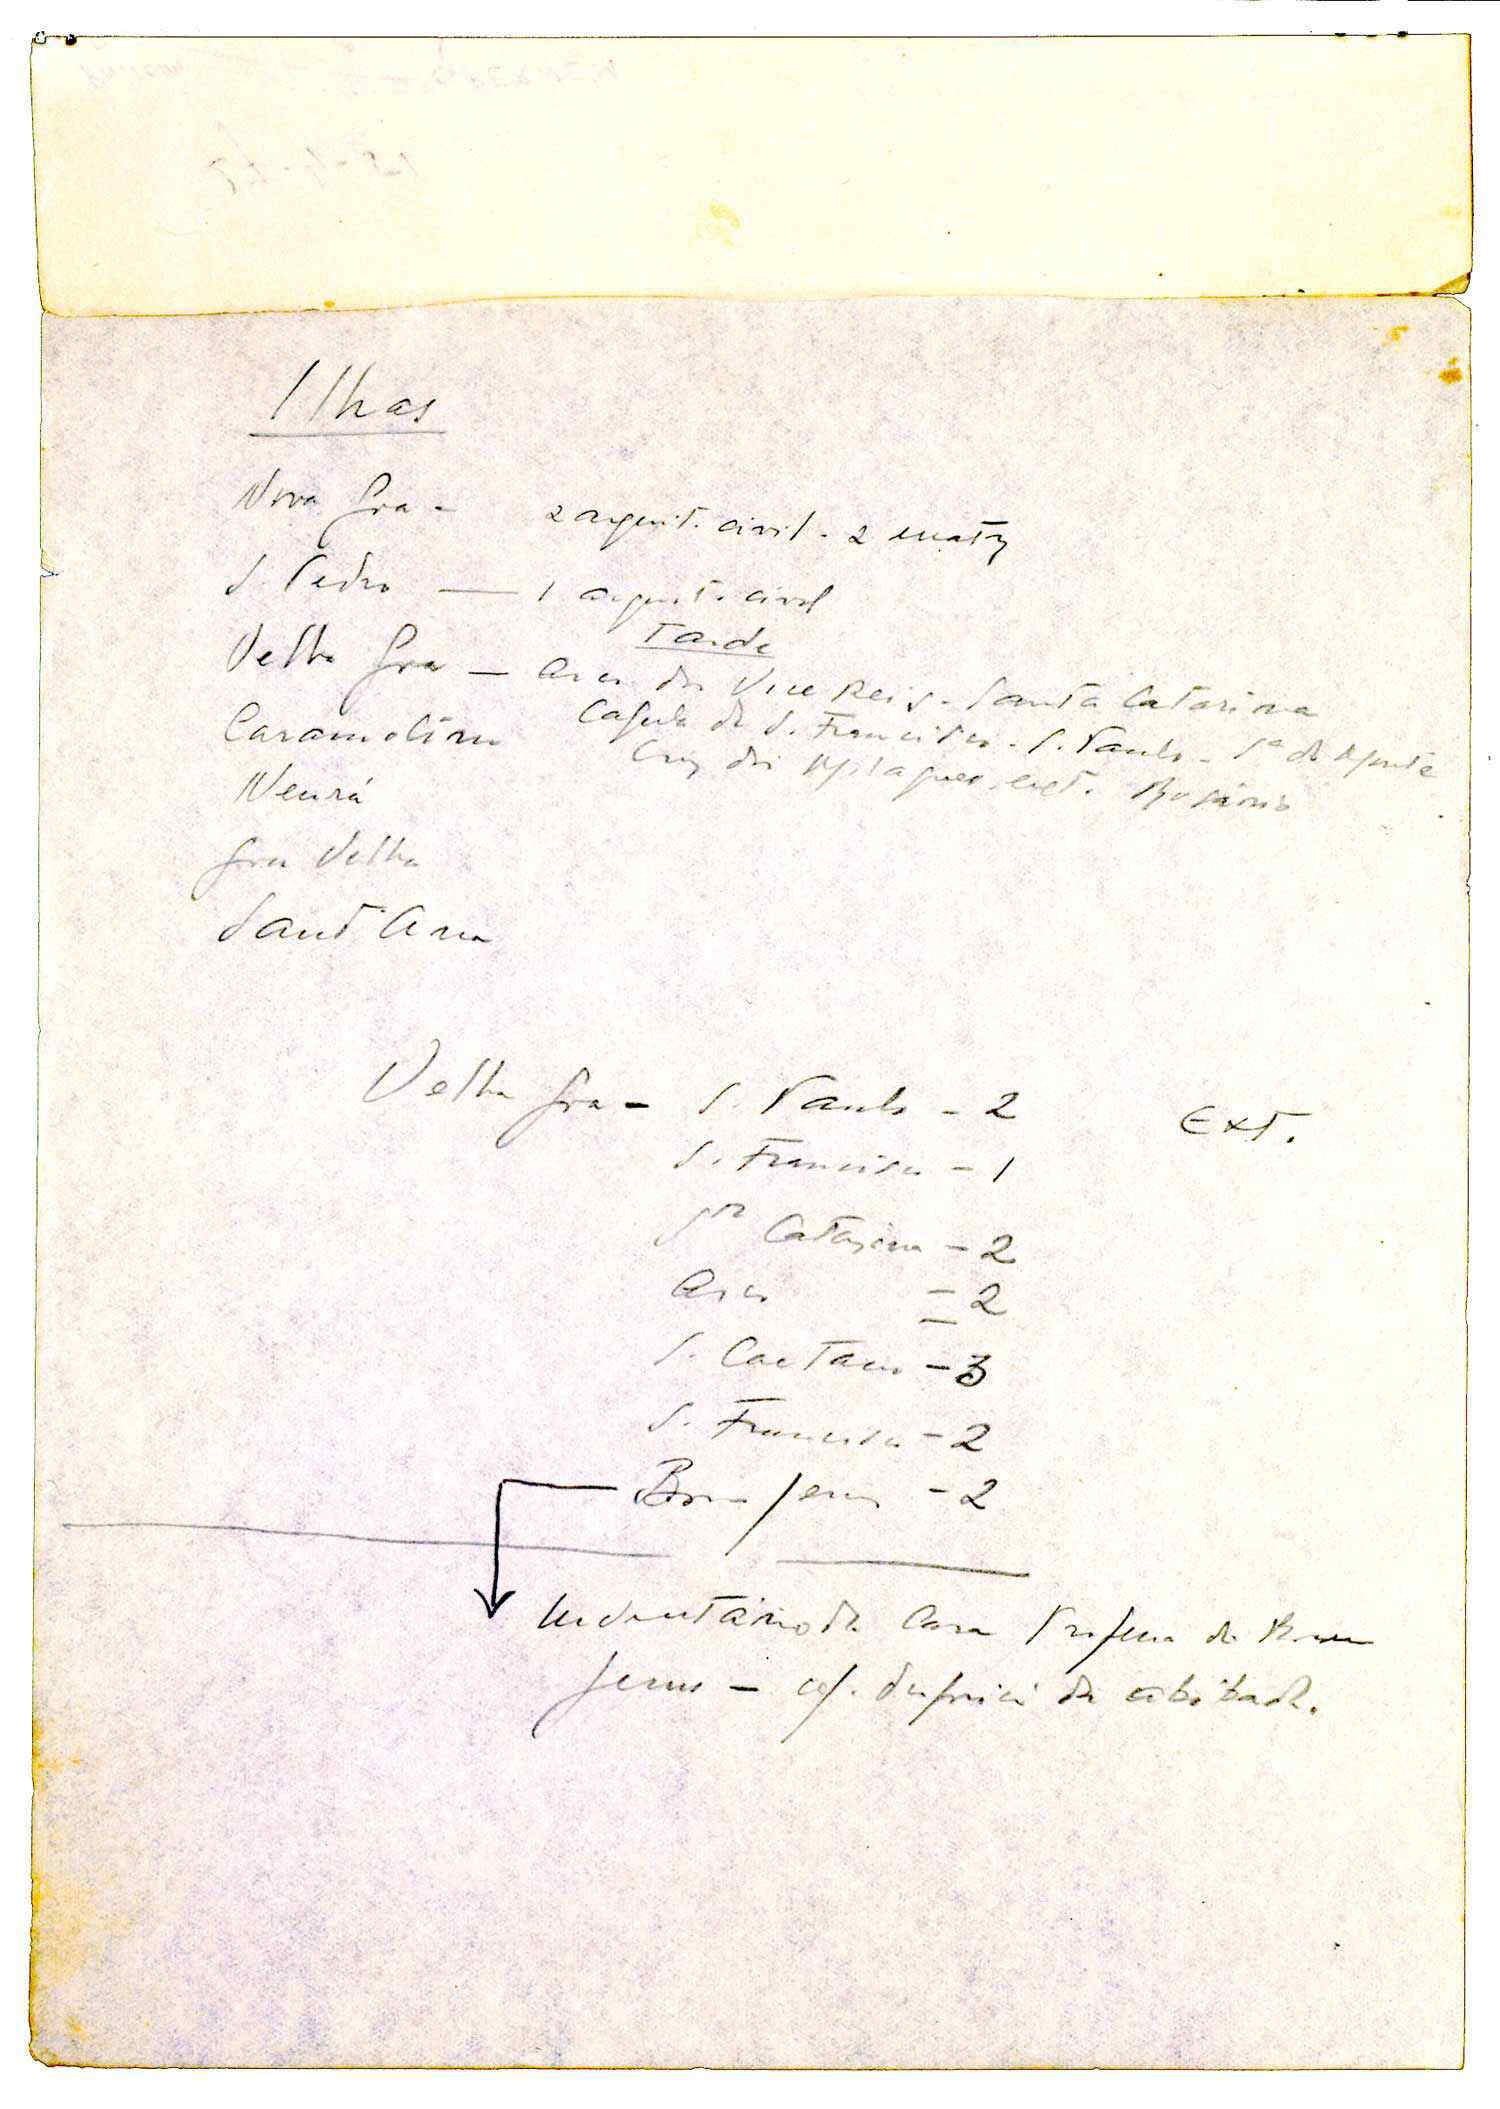 Ilhas
Nova Goa - 2 arquit. civil - 2 matriz
S. Pedro — 1 arquit. civil
Tarde
Velha Goa — Arco dos Vice Reis - Santa Catarina
Caramolim Capela de S. Francisco - S. Paulo - Sª do Monte
Cruz dos Milagres ext. Rosário
Neurá
Goa Velha
Sant'Ana
Velha Goa - S. Paulo - 2 Ext.
S. Francisco - 1
Stª Catarina - 2
Arco = 2
S. Caetano - 3
S. Francisco - 2
Bom Jesus - 2
Inventário da Casa Professa do Bom
Jesus — da